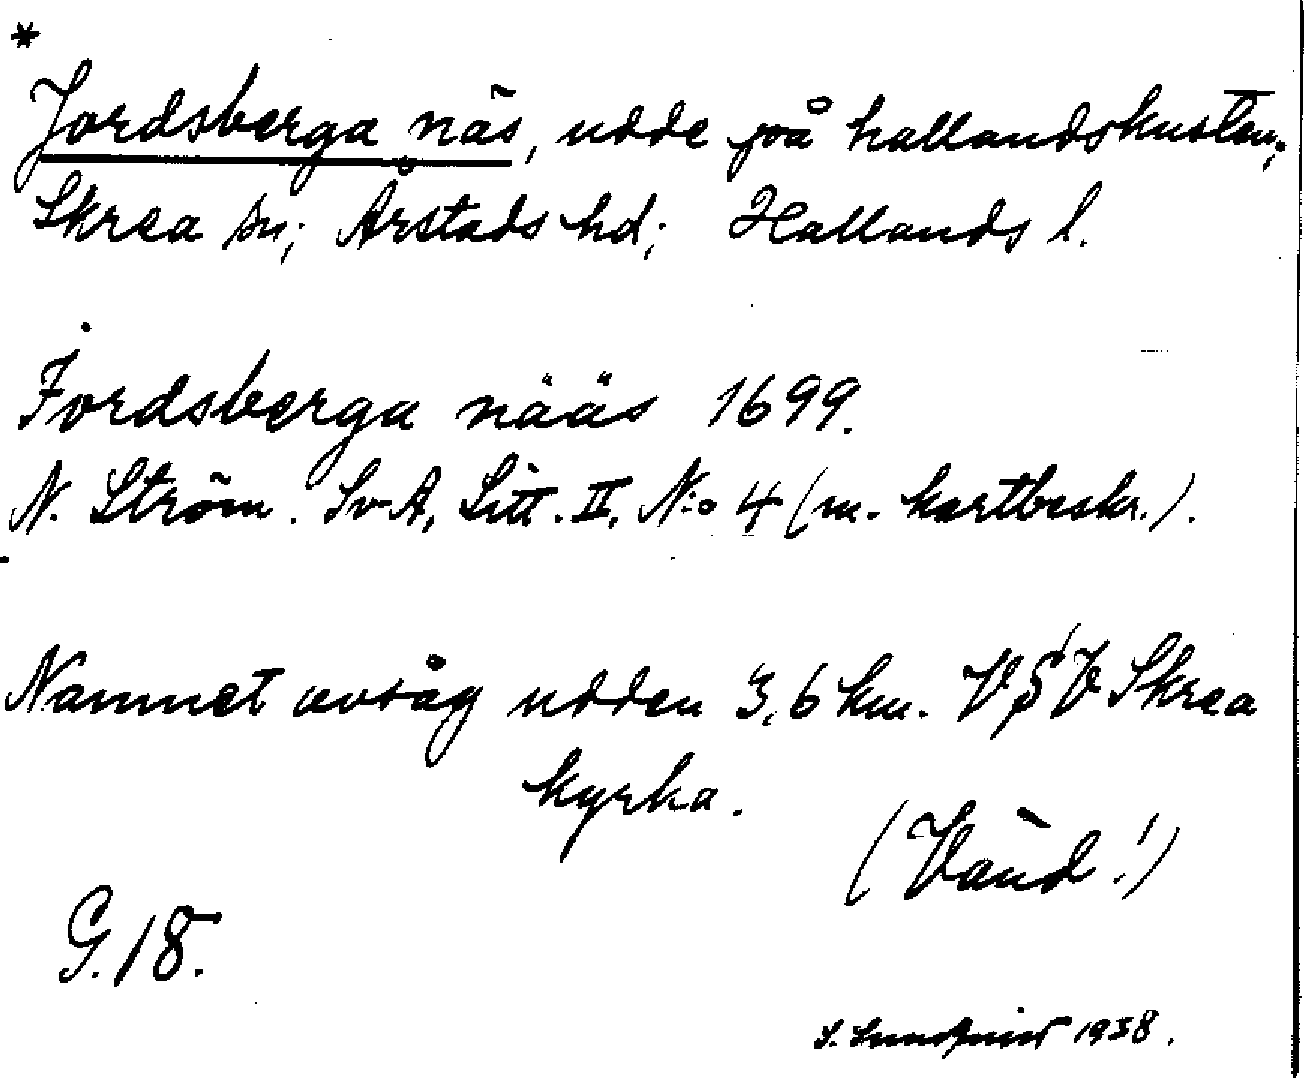 *
Jordsberga näs, udde på hallandskusten,
Skrea sn; Årstads hd; Hallands l.
Jordsberga nääs 1699.
N. Ström. SvA, Litt. II, N:o 4 (m. kartbeskr.).
Namnet avsåg udden 3,6 km. VSV Skrea
kyrka.
(Vänd!)
G. 18.
S. Lundqvist 1938.